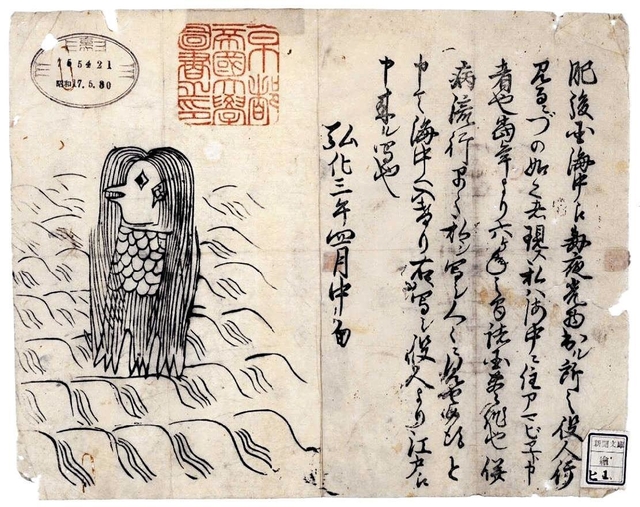 肥後国海中え毎夜光物出ル所之役人行
見るニづの如之者現ス私ハ海中ニ住アマビヱト申
者也当年より六ヶ年之間諸国豊作也併
病流行早々私ヲ写シ人々ニ見セ候得と
申て海中へ入けり右写シ役人より江戸え
申来ル写也
弘化三年四月中旬
京都
帝國大學
圖書之印
165421
昭和17.5.30
新聞文庫
繪
ヒ 1